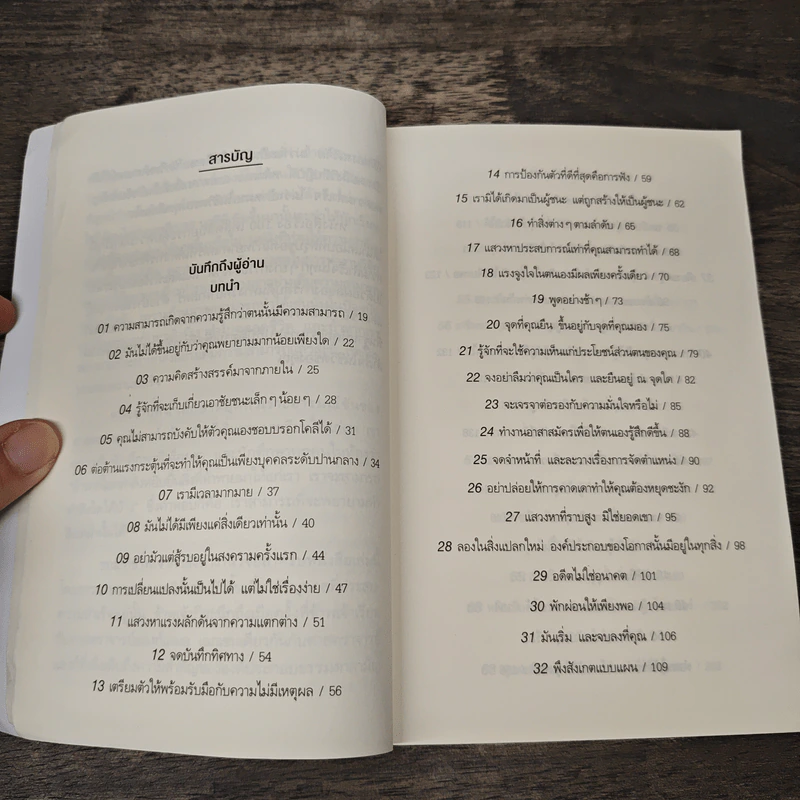 สารบัญ
บันทึกถึงผู้อ่าน
บทนำ
01 ความสามารถเกิดจากความรู้สึกว่าตนนั้นมีความสามารถ / 19
02 มันไม่ได้ขึ้นอยู่กับว่าคุณพยายามมากน้อยเพียงใด / 22
03 ความคิดสร้างสรรค์มาจากภายใน / 25
04 รู้จักที่จะเก็บเกี่ยวเอาชัยชนะเล็ก ๆ น้อย ๆ / 28
05 คุณไม่สามารถบังคับให้ตัวคุณเองชอบบรอกโคลีได้ / 31
06 ต่อต้านแรงกระตุ้นที่จะทำให้คุณเป็นเพียงบุคคลระดับปานกลาง / 34
07 เรามีเวลามากมาย / 37
08 มันไม่ได้มีเพียงแค่สิ่งเดียวเท่านั้น / 40
09 อย่ามัวแต่สู้รบอยู่ในสงครามครั้งแรก / 44
10 การเปลี่ยนแปลงนั้นเป็นไปได้ แต่ไม่ใช่เรื่องง่าย / 47
11 แสวงหาแรงผลักดันจากความแตกต่าง / 51
12 จดบันทึกทิศทาง / 54
13 เตรียมตัวให้พร้อมรับมือกับความไม่มีเหตุผล / 56
14 การป้องกันตัวที่ดีที่สุดคือการฟัง / 59
15 เรามิได้เกิดมาเป็นผู้ชนะ แต่ถูกสร้างให้เป็นผู้ชนะ / 62
16 ทำสิ่งต่าง ๆ ตามลำดับ / 65
17 แสวงหาประสบการณ์เท่าที่คุณสามารถทำได้ / 68
18 แรงจูงใจในตนเองมีผลเพียงครั้งเดียว / 70
19 พูดอย่างช้า ๆ / 73
20 จุดที่คุณยืน ขึ้นอยู่กับจุดที่คุณมอง / 75
21 รู้จักที่จะใช้ความเห็นแก่ประโยชน์ส่วนตนของคุณ / 79
22 จงอย่าลืมว่าคุณเป็นใคร และยืนอยู่ ณ จุดใด / 82
23 จะเจรจาต่อรองกับความมั่นใจหรือไม่ / 85
24 ทำงานอาสาสมัครเพื่อให้ตนเองรู้สึกดีขึ้น / 88
25 จดจำหน้าที่ และละวางเรื่องการจัดตำแหน่ง / 90
26 อย่าปล่อยให้การคาดเดาทำให้คุณต้องหยุดชะงัก / 92
27 แสวงหาที่ราบสูง มิใช่ยอดเขา / 95
28 ลองในสิ่งแปลกใหม่ องค์ประกอบของโอกาสนั้นมีอยู่ในทุกสิ่ง / 98
29 อดีตไม่ใช่อนาคต / 101
30 พักผ่อนให้เพียงพอ / 104
31 มันเริ่ม และจบลงที่คุณ / 106
32 พึงสังเกตแบบแผน / 109